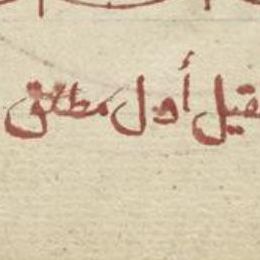 ثقيل أول مطلق